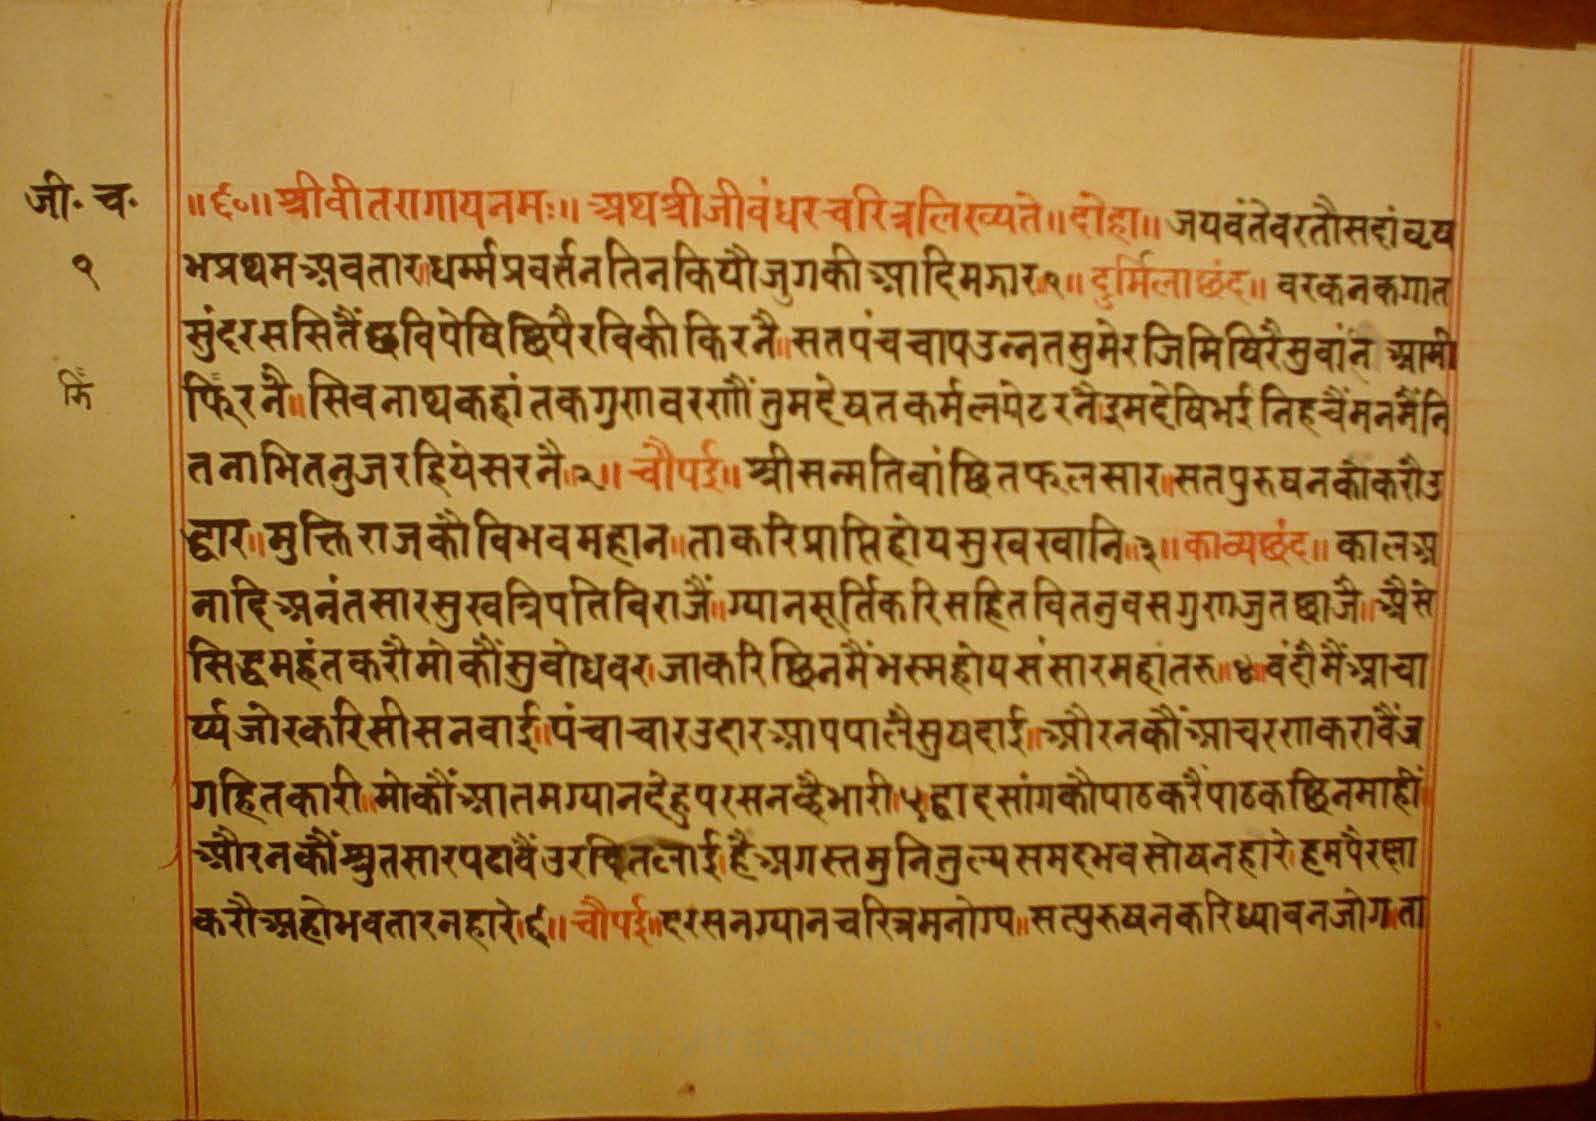 जी॰ च॰
१
॥६०॥ श्रीवीतरागायनमः॥ अथश्रीजीवंधरचरित्रलिख्यते॥ दोहा॥ जयवंतेवरतौसदांवृष
भप्रथमअवतार॥धर्म्मप्रवर्तनतिनकियौजुगकीआदिमझार॥१॥ दुर्मिलाछंद॥ वरकनकगात
सुंदरससितैंछविपेषिछिपैरविकीकिरनै॥सतपंचचापउन्नतसुमेरजिमिथिरैसुवांन आमी
फिंरनै॥सिवनाथकहांतकगुणवरणौंतुमदेषतकर्मलपेटरनै॥इमदेषिभईनिहचैंमनमैंनि
तनाभितनुजरहियेसरनै॥२॥ चौपई॥ श्रीसन्मतिवांछितफलसार॥सतपुरुषनकौकरौउ
द्धार॥मुक्तिराजकौंविभवमहान॥ताकरिप्राप्तिहोयसुखखानि॥३॥काव्यछंद॥ कालअ
नादिअनंतसारसुखत्रिपतिविराजैं॥ग्यानमूर्तिकरिसहितवितनुवसगुणजुतछाजै॥अैसे
सिद्धमहंतकरौमोकौंसुबोधवर॥जाकरिछिनमैंभस्महोयसंसारमहांतरु॥४॥वंदौमैंआचा
र्य्यजोरकरिसीसनवाई॥पंचाचारउदारआपपालैसुषदाई॥औरनकौंआचरणकरावैंज
गहितकारी॥मोकौंआतमग्यानदेहुपरसनव्हैभारी॥५॥द्वादसांगकौपाठकरैंपाठकछिनमाहीं॥
औरनकौंश्रुतसारपढावैंउरचितलाई॥हैंअगस्तमुनितुल्यसमदभवसोषनहारे॥हमपैरक्षा
करौअहोभवतारनहारे॥६॥चौपई॥दरसनग्यानचरित्रमनोग्य॥सत्पुरुषनकरिध्यावनजोग॥ता